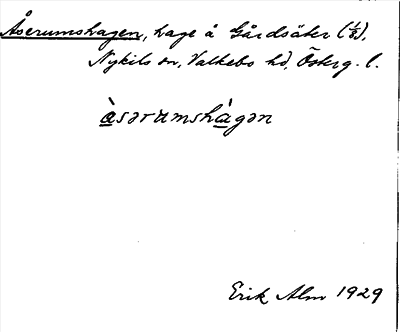 Åserumshagen, hage å Gårdsäter (1/8),
Nykils sn, Valkebo hd, Österg. l.
àsərumshàgən
Erik Alm 1929